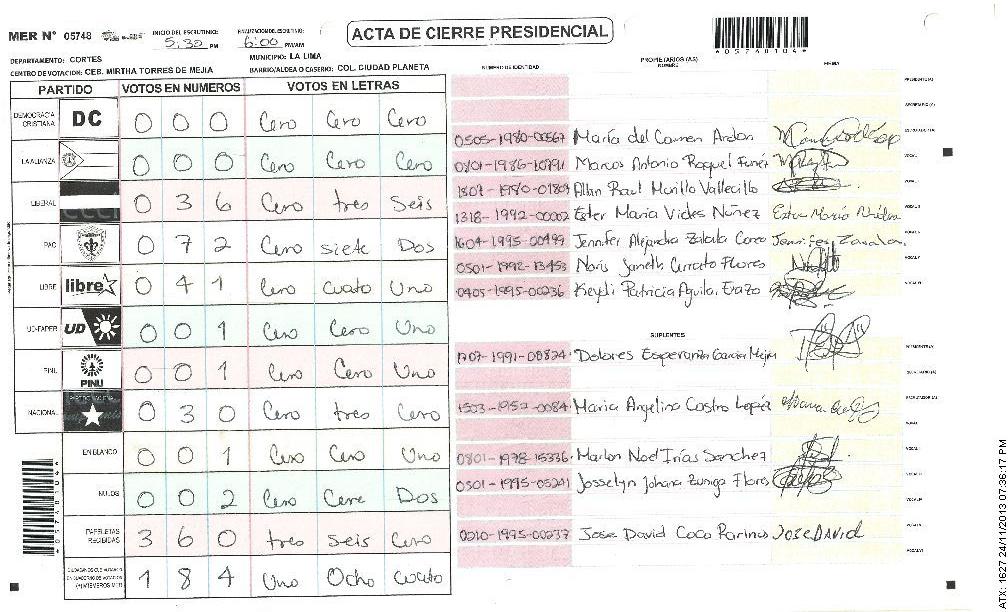 MER N° 05748
INICIO DEL ESCRUTINIO: 5:30 PM
FINALIZACION DEL ESCRUTINIO: 6:00 PM/AM
ACTA DE CIERRE PRESIDENCIAL
*05748104*
DEPARTAMENTO: CORTES
MUNICIPIO: LA LIMA
CENTRO DE VOTACION: CEB. MIRTHA TORRES DE MEJIA
BARRIO/ALDEA O CASERIO: COL. CIUDAD PLANETA
PARTIDO VOTOS EN NUMEROS VOTOS EN LETRAS
DEMOCRACIA CRISTIANA DC 0 0 0 Cero Cero Cero
LA ALIANZA 0 0 0 Cero Cero Cero
LIBERAL 0 3 6 Cero tres Seis
PAC 0 7 2 Cero siete Dos
LIBRE libre 0 4 1 Cero cuato Uno
UD-FAPER UD 0 0 1 Cero Cero Uno
PINU PINU 0 0 1 Cero Cero Uno
NACIONAL 0 3 0 Cero tres Cero
EN BLANCO 0 0 1 Cero Cero Uno
NULOS 0 0 2 Cero Cero Dos
PAPELETAS RECIBIDAS 3 6 0 tres seis Cero
1 8 4 Uno Ocho cuato
NUMERO DE IDENTIDAD PROPIETARIOS (AS) NOMBRE FIRMA
PRESIDENTE(A)
SECRETARIO (A)
0505-1980-00567 María del Carmen Ardon ESCRUTADOR(A)
0801-1986-10791 Marcos Antonio Raquel Funez VOCAL I
1807-1980-01809 Allan Raul Murillo Vallecillo VOCAL II
1318-1992-00002 Ester Maria Vides Núñez VOCAL III
1604-1995-00499 Jennifer Alejandra Zabala Coco VOCAL IV
0501-1992-13453 Noris Janeth Cerrato Flores VOCAL V
0405-1995-00236 Keydi Patricia Aguilar Erazo VOCAL VI
SUPLENTES
1707-1991-00824 Dolores Esperanza Garcia Mejia PRESIDENTE(A)
SECRETARIO (A)
1503-1952-0084 Maria Angelina Castro ESCRUTADOR (A)
VOCAL
0801-1978-15336 Marlon Noel Irías Sanchez VOCAL II
0501-1995-05201 Josselyn Johana Zuniga Flores VOCAL III
VOCAL IV
0210-1995-00237 Jose David Coco JOSE DAVID VOCAL V
VOCAL VI
*05748104*
ATX: 1627 24/11/2013 07:36:17 PM